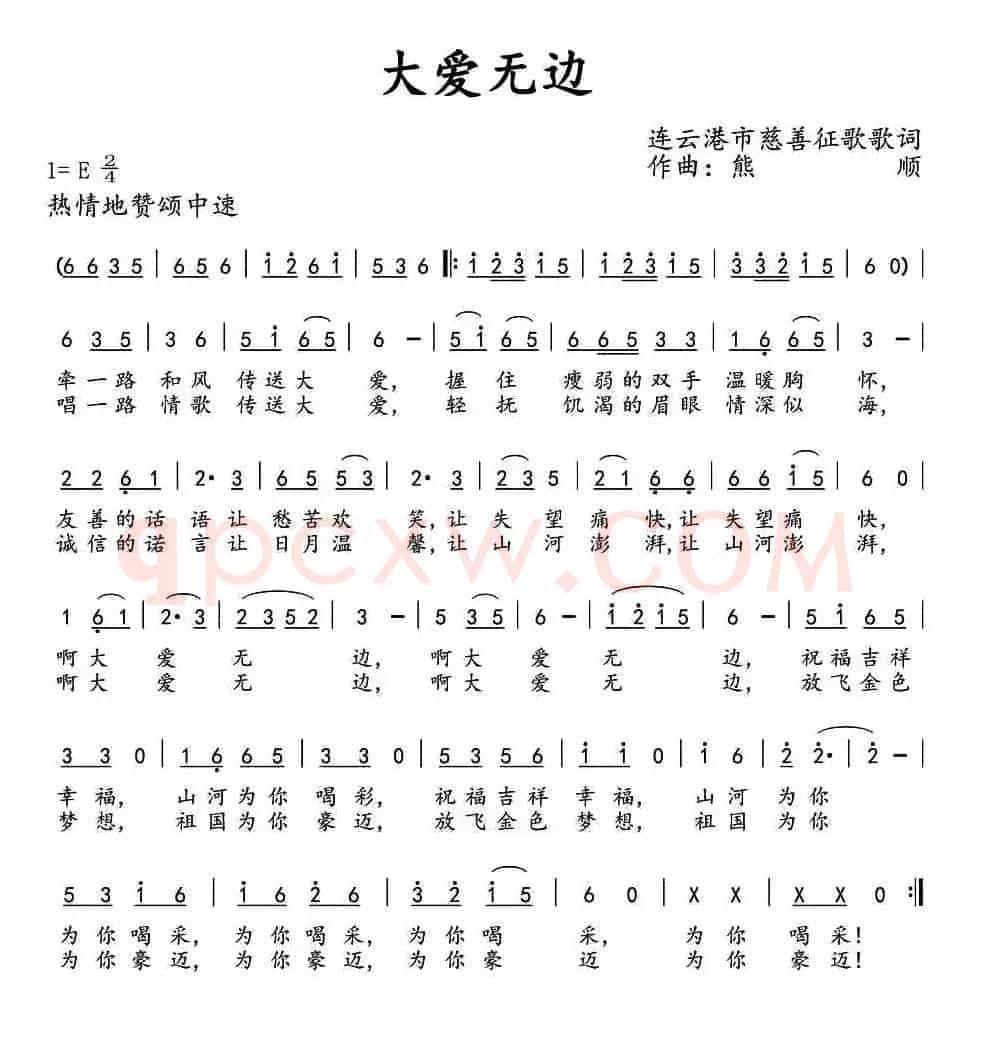 大爱无边
连云港市慈善征歌歌词
作曲：熊 顺
1=E 2/4
热情地赞颂中速
(6 6 3 5 | 6 5 6 | i 2 6 i | 5 3 6 ‖: i 2 3 i 5 | i 2 3 i 5 | 3 3 2 i 5 | 6 0) |
6 3 5 | 3 6 | 5 i 6 5 | 6 - | 5 i 6 5 | 6 6 5 3 3 | 1 6 6 5 | 3 - |
牵一路 和风 传送大 爱, 握 住 瘦弱的双手 温暖胸 怀,
唱一路 情歌 传送大 爱, 轻 抚 饥渴的眉眼 情深似 海,
2 2 6 1 | 2· 3 | 6 5 5 3 | 2· 3 | 2 3 5 | 2 1 6 6 | 6 6 i 5 | 6 0
友善的话 语让 愁苦欢 笑,让 失 望 痛 快,让 失望痛 快,
诚信的诺 言让 日月温 馨,让 山 河 澎 湃,让 山河澎 湃,
qpcxw.COM
1 6 1 | 2· 3 | 2 3 5 2 | 3 - | 5 3 5 | 6 - | i 2 i 5 | 6 - | 5 i 6 5 |
啊大 爱 无 边, 啊大 爱 无 边, 祝福吉祥
啊大 爱 无 边, 啊大 爱 无 边, 放飞金色
3 3 0 | 1 6 6 5 | 3 3 0 | 5 3 5 6 | i i 0 | i 6 | 2 2· | 2 - |
幸福, 山河为你 喝彩, 祝福吉祥 幸福, 山河 为你
梦想, 祖国为你 豪迈, 放飞金色 梦想, 祖国 为你
5 3 i 6 | i 6 2 6 | 3 2 i 5 | 6 0 | X X | X X 0 :‖
为你喝采, 为你喝采, 为你喝 采, 为你 喝采!
为你豪迈, 为你豪迈, 为你豪 迈 为你 豪迈!